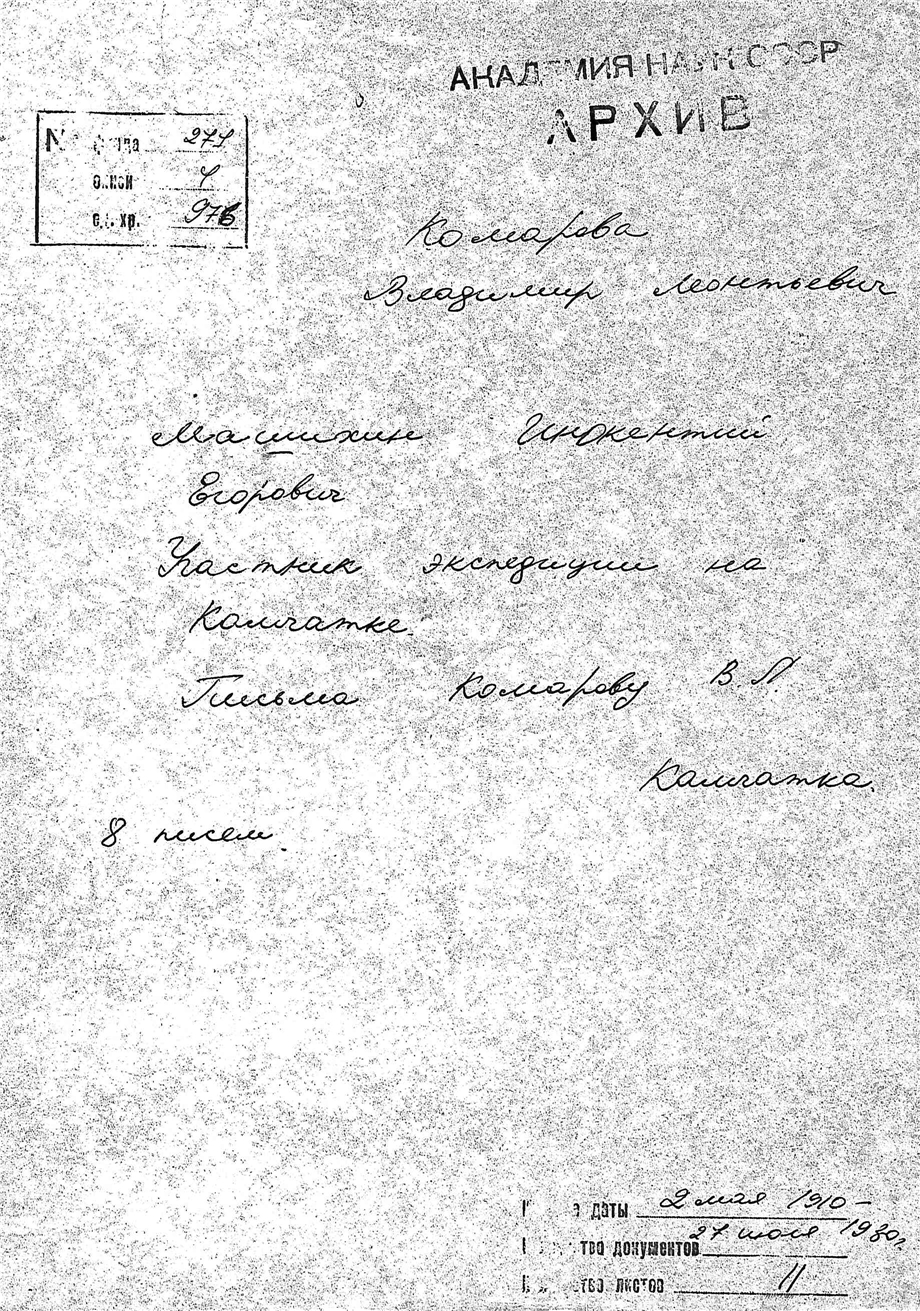 АКАДЕМИЯ НАУК СССР
АРХИВ
№ фонда 277
описи 4
ед. хр. 976
Комарова
Владимир Леонтьевич
Машихин Инокентий
Егорович
Участник экспедиции на
Камчатке.
Письма Комарову В.Л.
Камчатка.
8 писем.
даты 2 мая 1910 –
27 июля 1930 г.
документов
листов 11